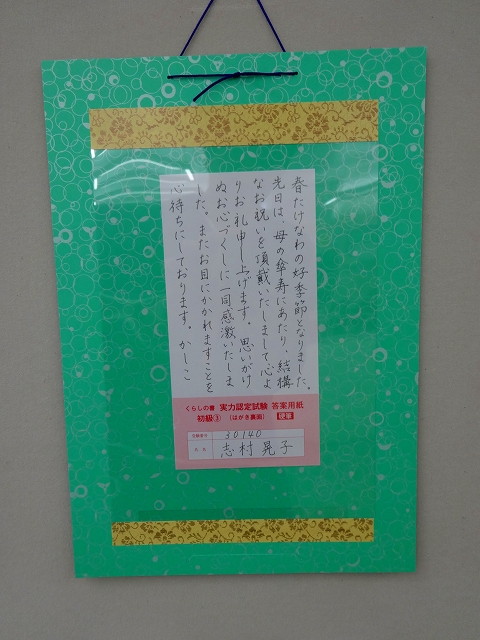 春たけなわの好季節となりました。
先日は、母の傘寿にあたり、結構
なお祝いを頂戴いたしまして心よ
りお礼申し上げます。思いがけ
ぬお心づくしに一同感激いたしま
した。またお目にかかれますことを
心待ちにしております。かしこ
くらしの書 実力認定試験 答案用紙
初級③ (はがき裏面) 硬筆
受験番号 30140
氏名 志村晃子